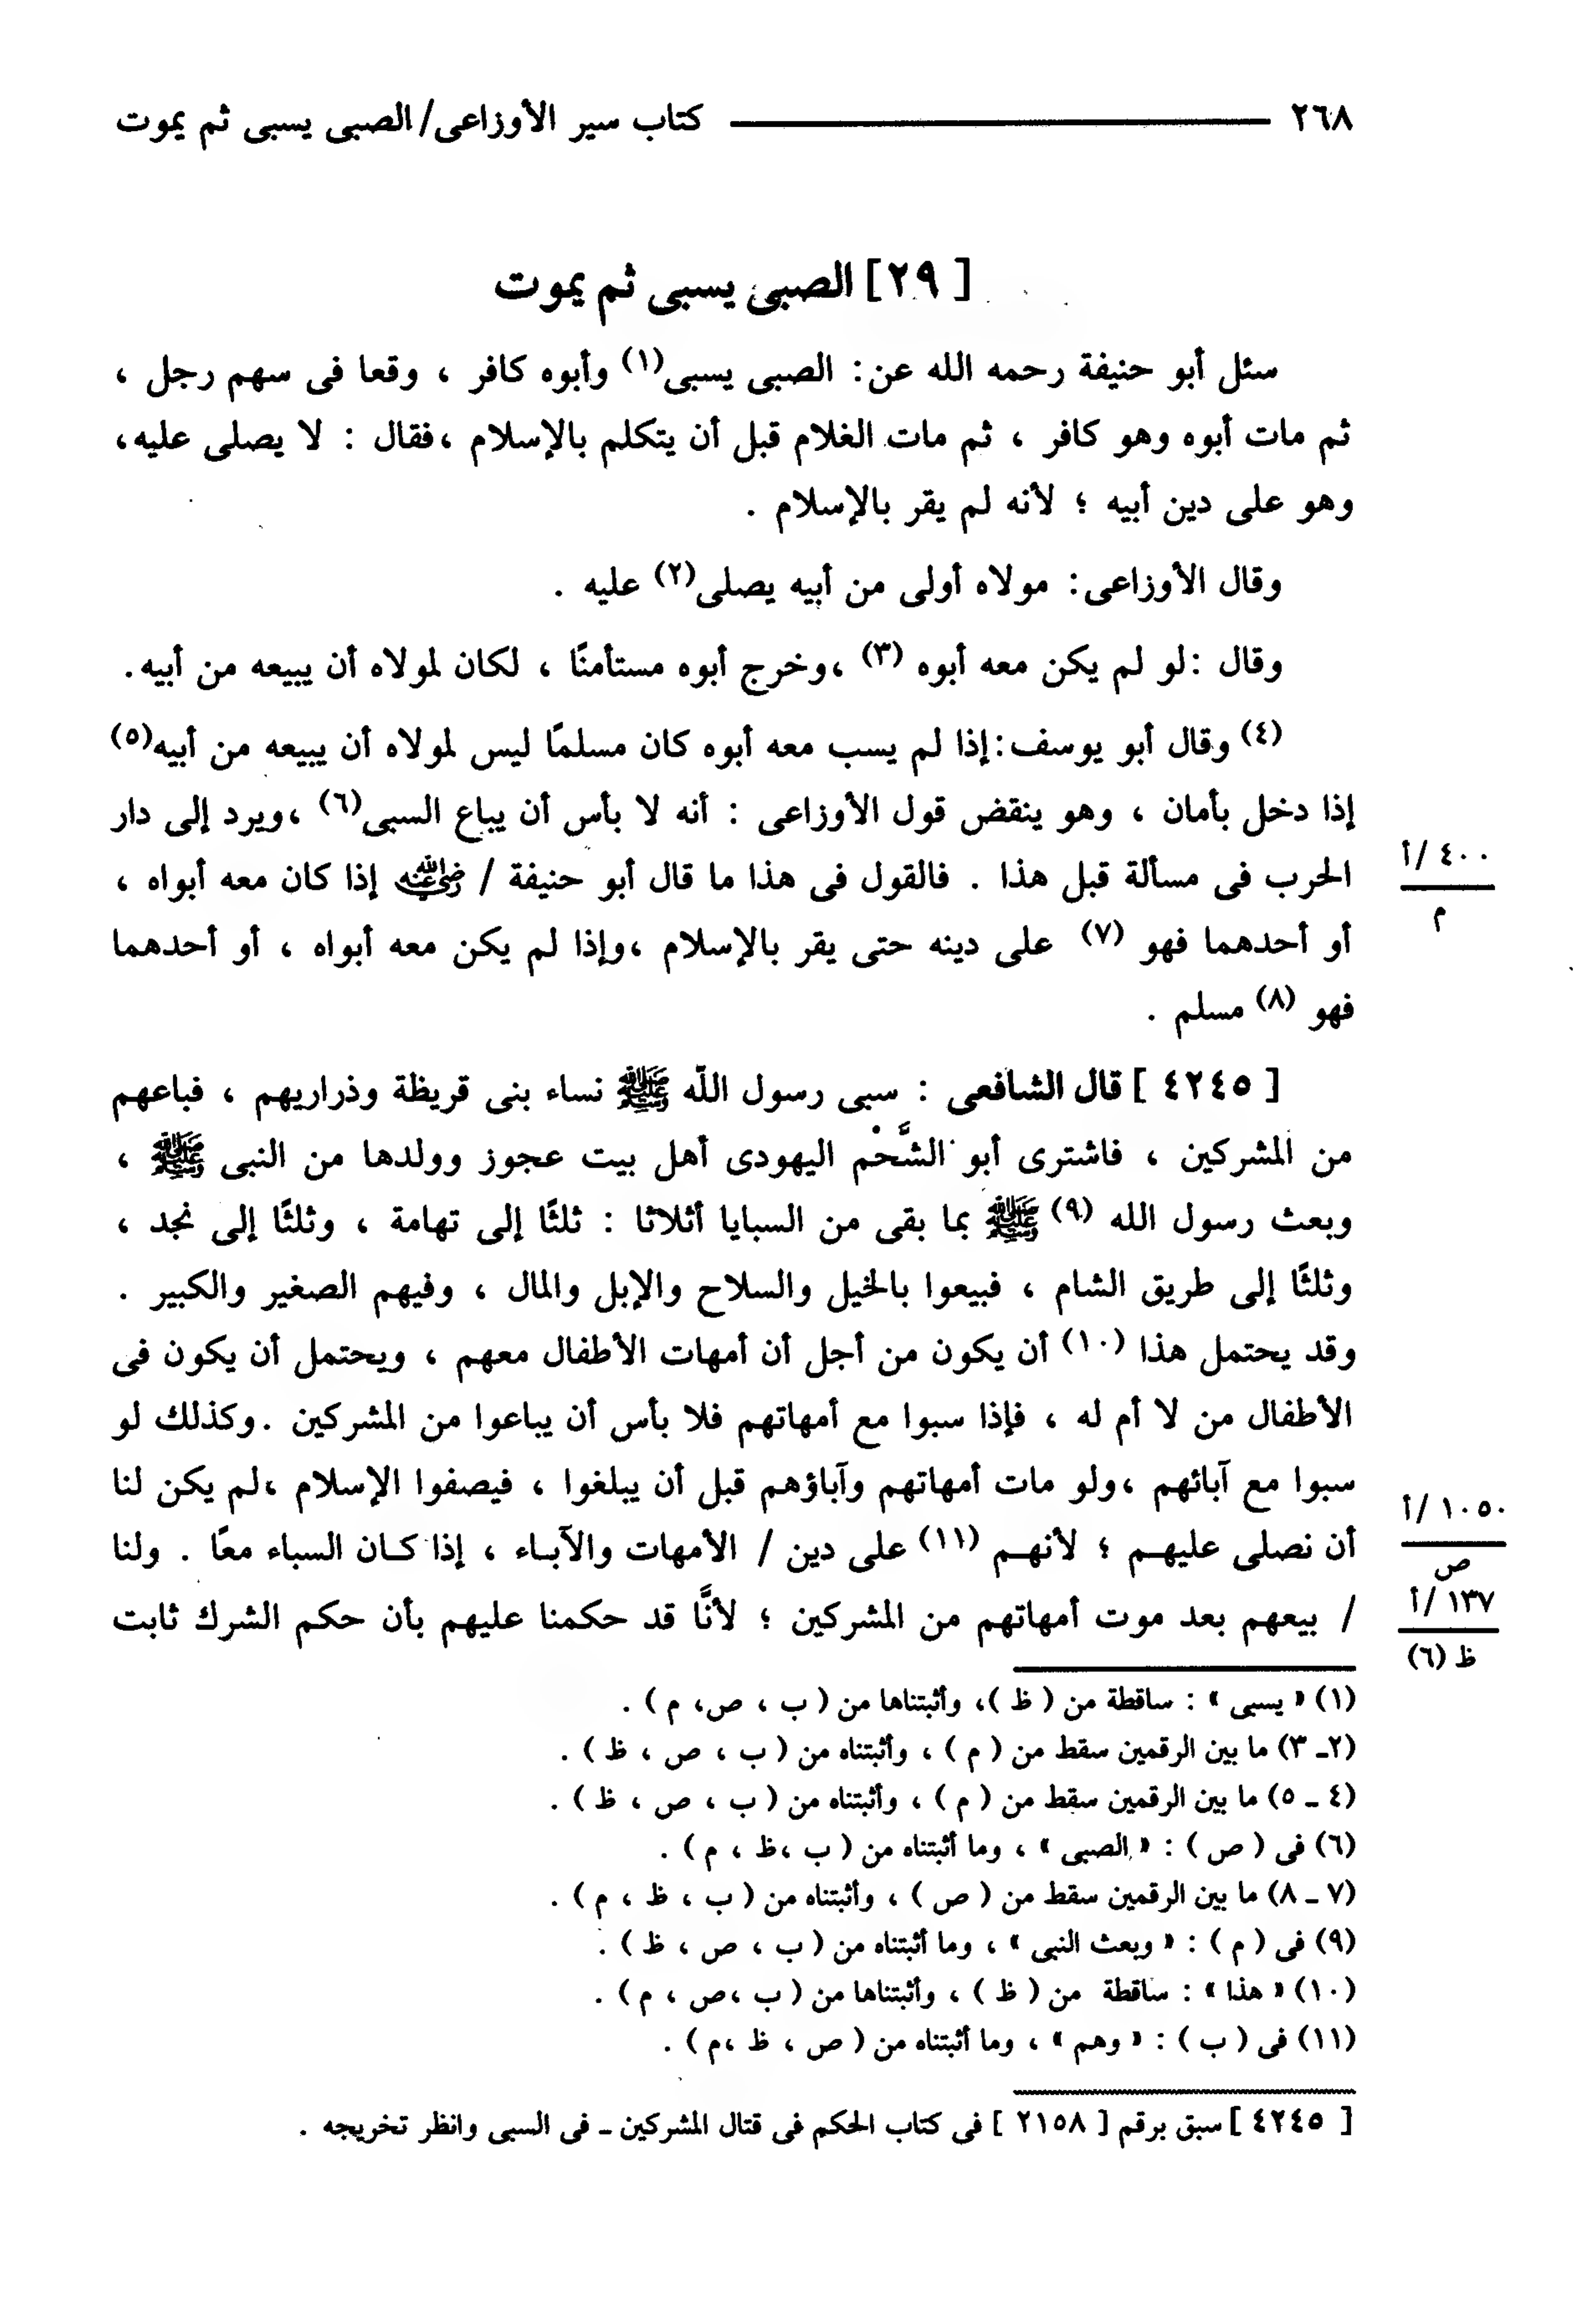 ٢٦٨ كتاب سير الأوزاعى/الصبى يسبى ثم يموت
[ ٢٩] الصبى يسبى ثم يموت
سئل أبو حنيفة رحمه الله عن: الصبى يسبى(١) وأبوه كافر ، وقعا فى سهم رجل ،
ثم مات أبوه وهو كافر ، ثم مات الغلام قبل أن يتكلم بالإسلام ،فقال : لا يصلى عليه،
وهو على دين أبيه ؛ لأنه لم يقر بالإسلام .
وقال الأوزاعى: مولاه أولى من أبيه يصلى(٢) عليه .
وقال :لو لم يكن معه أبوه (٣) ،وخرج أبوه مستأمنًا ، لكان لمولاه أن يبيعه من أبيه.
(٤) وقال أبو يوسف:إذا لم يسب معه أبوه كان مسلمًا ليس لمولاه أن يبيعه من أبيه(٥)
إذا دخل بأمان ، وهو ينقض قول الأوزاعى : أنه لا بأس أن يباع السبى(٦) ،ويرد إلى دار
الحرب فى مسألة قبل هذا . فالقول فى هذا ما قال أبو حنيفة / رضي الله عنه إذا كان معه أبواه ،
٤٠٠ /أ
م
أو أحدهما فهو (٧) على دينه حتى يقر بالإسلام ،وإذا لم يكن معه أبواه ، أو أحدهما
فهو (٨) مسلم .
[ ٤٢٤٥ ] قال الشافعى : سبى رسول الله ﷺ نساء بنى قريظة وذراريهم ، فباعهم
من المشركين ، فاشترى أبو الشَّحْم اليهودى أهل بيت عجوز وولدها من النبى ﷺ ،
وبعث رسول الله (٩) ﷺ بما بقى من السبايا أثلاثا : ثلثًا إلى تهامة ، وثلثًا إلى نجد ،
وثلثًا إلى طريق الشام ، فبيعوا بالخيل والسلاح والإبل والمال ، وفيهم الصغير والكبير .
وقد يحتمل هذا (١٠) أن يكون من أجل أن أمهات الأطفال معهم ، ويحتمل أن يكون فى
الأطفال من لا أم له ، فإذا سبوا مع أمهاتهم فلا بأس أن يباعوا من المشركين .وكذلك لو
سبوا مع آبائهم ،ولو مات أمهاتهم وآباؤهم قبل أن يبلغوا ، فيصفوا الإسلام ،لم يكن لنا
أن نصلى عليهم ؛ لأنهم (١١) على دين / الأمهات والآباء ، إذا كان السباء معًا . ولنا
١٠٥٠ /أ
ص
/ بيعهم بعد موت أمهاتهم من المشركين ؛ لأنَّا قد حكمنا عليهم بأن حكم الشرك ثابت
١٣٧ /أ
ظ (٦)
(١) « يسبى » : ساقطة من ( ظ )، وأثبتناها من ( ب ، ص، م ) .
(٢ـ ٣) ما بين الرقمين سقط من ( م ) ، وأثبتناه من ( ب ، ص ، ظ ) .
(٤ ـ ٥) ما بين الرقمين سقط من ( م ) ، وأثبتناه من ( ب ، ص ، ظ ) .
(٦) فى ( ص ) : « الصبى » ، وما أثبتناه من ( ب ،ظ ، م ) .
(٧ ـ ٨) ما بين الرقمين سقط من ( ص ) ، وأثبتناه من ( ب ، ظ ، م ) .
(٩) فى ( م ) : « وبعث النبى » ، وما أثبتناه من ( ب ، ص ، ظ ) .
(١٠) « هذا » : ساقطة من ( ظ ) ، وأثبتناها من ( ب ،ص ، م ) .
(١١) فى ( ب ) : « وهم » ، وما أثبتناه من ( ص ، ظ ،م ) .
[ ٤٢٤٥ ] سبق برقم [ ٢١٥٨ ] فى كتاب الحكم فى قتال المشركين ـ فى السبى وانظر تخريجه .